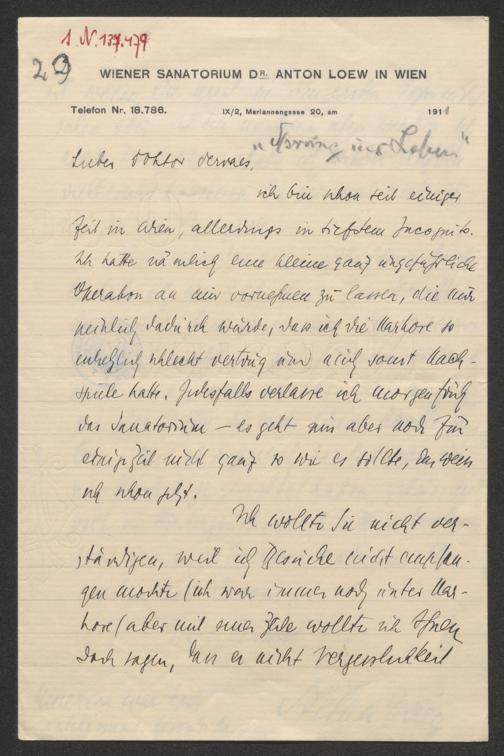 1 N. 137.479
29
WIENER SANATORIUM DR. ANTON LOEW IN WIEN
Telefon Nr. 18.786.
IX/2, Mariannengasse 20, am 1911
"Sprung ins Leben"
Lieber Doktor Servaes,
ich bin schon seit einiger
Zeit in Wien, allerdings in tiefstem Incognito.
Ich hatte nämlich eine kleine ganz ungefährliche
Operation an mir vornehmen zu lassen, die nur
peinlich dadurch wurde, dass ich die Narkose so
entsetzlich schlecht vertrug und auch sonst Nach-
spiele hatte. Jedesfalls verlasse ich morgen früh
das Sanatorium – es geht mir aber noch für
einige Zeit nicht ganz so wie es sollte, das weiss
ich schon jetzt.
Ich wollte Sie nicht ver-
ständigen, weil ich Besuche nicht empfan-
gen mochte (ich war immer noch unter Nar-
kose) aber mit einer Zeile wollte ich Ihnen
doch sagen, dass es nicht Vergesslichkeit